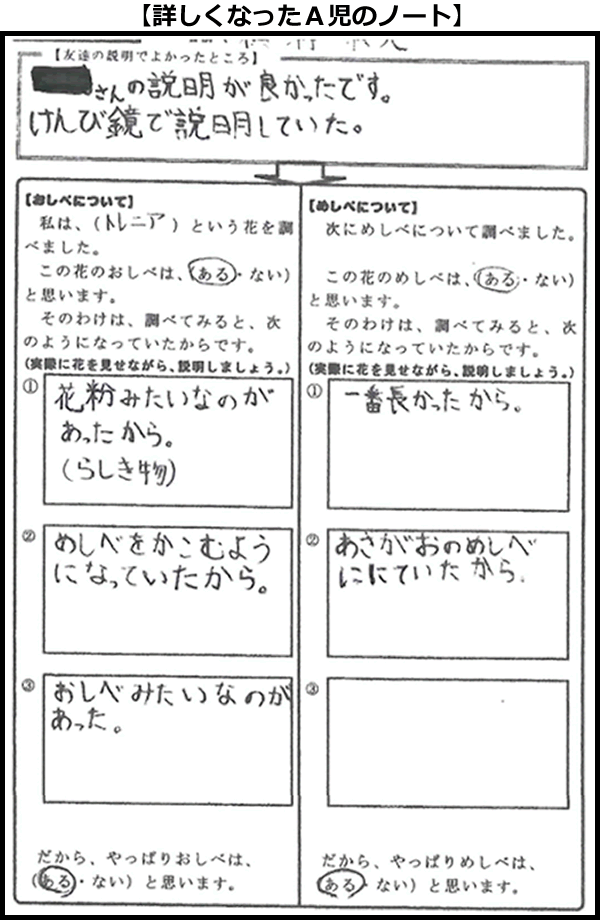 【詳しくなったA児のノート】
【友達の説明でよかったところ】
さんの説明が良かったです。
けんび鏡で説明していた。
【おしべについて】
私は、(トレニア)という花を調
べました。
この花のおしべは、(ある・ない)
と思います。
そのわけは、調べてみると、次
のようになっていたからです。
(実際に花を見せながら、説明しましょう。)
①
花粉みたいなのが
あったから。
(らしき物)
②
めしべをかこむよう
になっていたから。
③
おしべみたいなのが
あった。
だから、やっぱりおしべは、
(ある・ない)と思います。
【めしべについて】
次にめしべについて調べました。
この花のめしべは、(ある・ない)
と思います。
そのわけは、調べてみると、次
のようになっていたからです。
(実際に花を見せながら、説明しましょう。)
①
一番長かったから。
②
あさがおのめしべ
ににていたから。
③
だから、やっぱりめしべは、
(ある・ない)と思います。